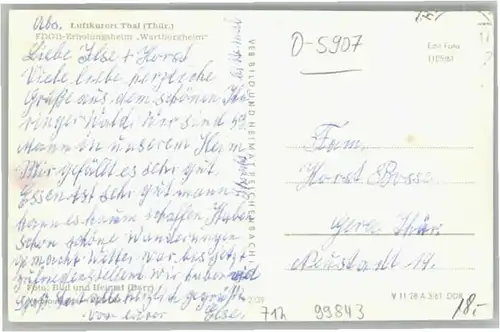 Abs.
Luftkurort Thal (Thür.)
FDGB-Erholungsheim „Wartburgheim“
Liebe Ilse + Horst
Viele liebe herzliche
Grüße aus dem schönen Thü
ringer Wald. Wir sind
Mann in unserem Heim
Mir gefällt es sehr gut.
Essen ist sehr gut mann
kann es kaum schaffen Haben
schon schöne Wanderungen
gemacht. Wetter war bis jetzt
zufriedenstellend wir haben viel
Foto: Bild und Heimat (Darr)
Spaß herzlich gegrüßt
von eurer Ilse.
VEB BILD UND HEIMAT REICHENBACH I. V.
D-5907
Echt Foto
Fam.
Horst Bosse
Gera Thür.
Neustadt 19.
712 99843
V 11 28 A 3/61 DDR
18,-